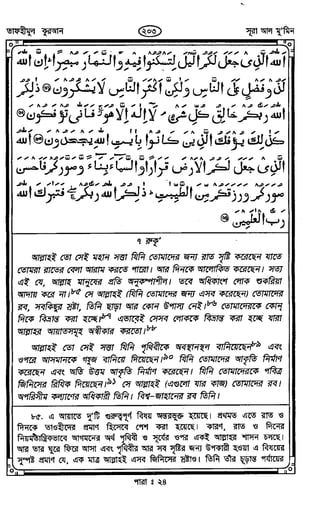 তাফহীমুল কুরআন
২০৩
সূরা আল মু'মিন
اَللّٰهُ الَّذِيْ جَعَلَ لَكُمُ الَّيْلَ لِتَسْكُنُوْا فِيْهِ وَالنَّهَارَ مُبْصِرًا ؕ اِنَّ اللّٰهَ
لَذُوْ فَضْلٍ عَلَى النَّاسِ وَلٰكِنَّ اَكْثَرَ النَّاسِ لَا يَشْكُرُوْنَ ۝ ذٰلِكُمُ
اللّٰهُ رَبُّكُمْ خَالِقُ كُلِّ شَيْءٍ ۘ لَاۤ اِلٰهَ اِلَّا هُوَ ۫ فَاَنّٰى تُؤْفَكُوْنَ ۝
كَذٰلِكَ يُؤْفَكُ الَّذِيْنَ كَانُوْا بِاٰيٰتِ اللّٰهِ يَجْحَدُوْنَ ۝ اَللّٰهُ
الَّذِيْ جَعَلَ لَكُمُ الْاَرْضَ قَرَارًا وَّالسَّمَآءَ بِنَآءً وَّصَوَّرَكُمْ فَاَحْسَنَ
صُوَرَكُمْ وَرَزَقَكُمْ مِّنَ الطَّيِّبٰتِ ؕ ذٰلِكُمُ اللّٰهُ رَبُّكُمْ ۖ فَتَبٰرَكَ اللّٰهُ
رَبُّ الْعٰلَمِيْنَ ۝
৭ রুকূ'
আল্লাহই তো সেই মহান সত্তা যিনি তোমাদের জন্য রাত সৃষ্টি করেছেন যাতে
তোমরা রাতের বেলা আরাম করতে পারো। আর দিনকে আলোকিত করেছেন। সত্য
এই যে, আল্লাহ মানুষের প্রতি অনুকম্পাশীল। তবে অধিকাংশ লোক শুকরিয়া
আদায় করে না।৮৫ সে আল্লাহই (যিনি তোমাদের জন্য এসব করেছেন) তোমাদের
রব, সবকিছুর স্রষ্টা, তিনি ছাড়া আর কোন উপাস্য নেই।৮৬ তোমাদেরকে কোন্
দিকে বিভ্রান্ত করা হচ্ছে?৮৭ এভাবেই সেসব লোককে বিভ্রান্ত করা হচ্ছে যারা
আল্লাহর আয়াতসমূহ অস্বীকার করতো।৮৮
আল্লাহই তো সেই সত্তা যিনি পৃথিবীকে অবস্থানস্থল বানিয়েছেন৮৯ এবং
ওপরে আসমানকে গম্বুজ বানিয়ে দিয়েছেন।৯০ যিনি তোমাদের আকৃতি নির্মাণ
করেছেন এবং অতি উত্তম আকৃতি নির্মাণ করেছেন। যিনি তোমাদেরকে পবিত্র
জিনিসের রিযিক দিয়েছেন।৯১ সে আল্লাহই (এগুলো যার কাজ) তোমাদের রব।
অপরিসীম কল্যাণের অধিকারী তিনি। বিশ্ব-জাহানের রব তিনি।
৮৫. এ আয়াতে দু'টি গুরুত্বপূর্ণ বিষয় অন্তর্ভুক্ত হয়েছে। প্রথমত এতে রাত ও
দিনকে তাওহীদের প্রমাণ হিসেবে পেশ করা হয়েছে। কারণ, রাত ও দিনের
নিয়মতান্ত্রিকভাবে আগমনের অর্থ পৃথিবী ও সূর্যের ওপর একই আল্লাহর শাসন চলছে।
আর তার ঘুরে ফিরে আসা এবং পৃথিবীর আর সব সৃষ্টির জন্য উপকারী হওয়া এ বিষয়ের
সুস্পষ্ট প্রমাণ যে, এক মাত্র আল্লাহই এসব জিনিসের স্রষ্টাও। তিনি তাঁর চূড়ান্ত পর্যায়ের
পারা ঃ ২৪